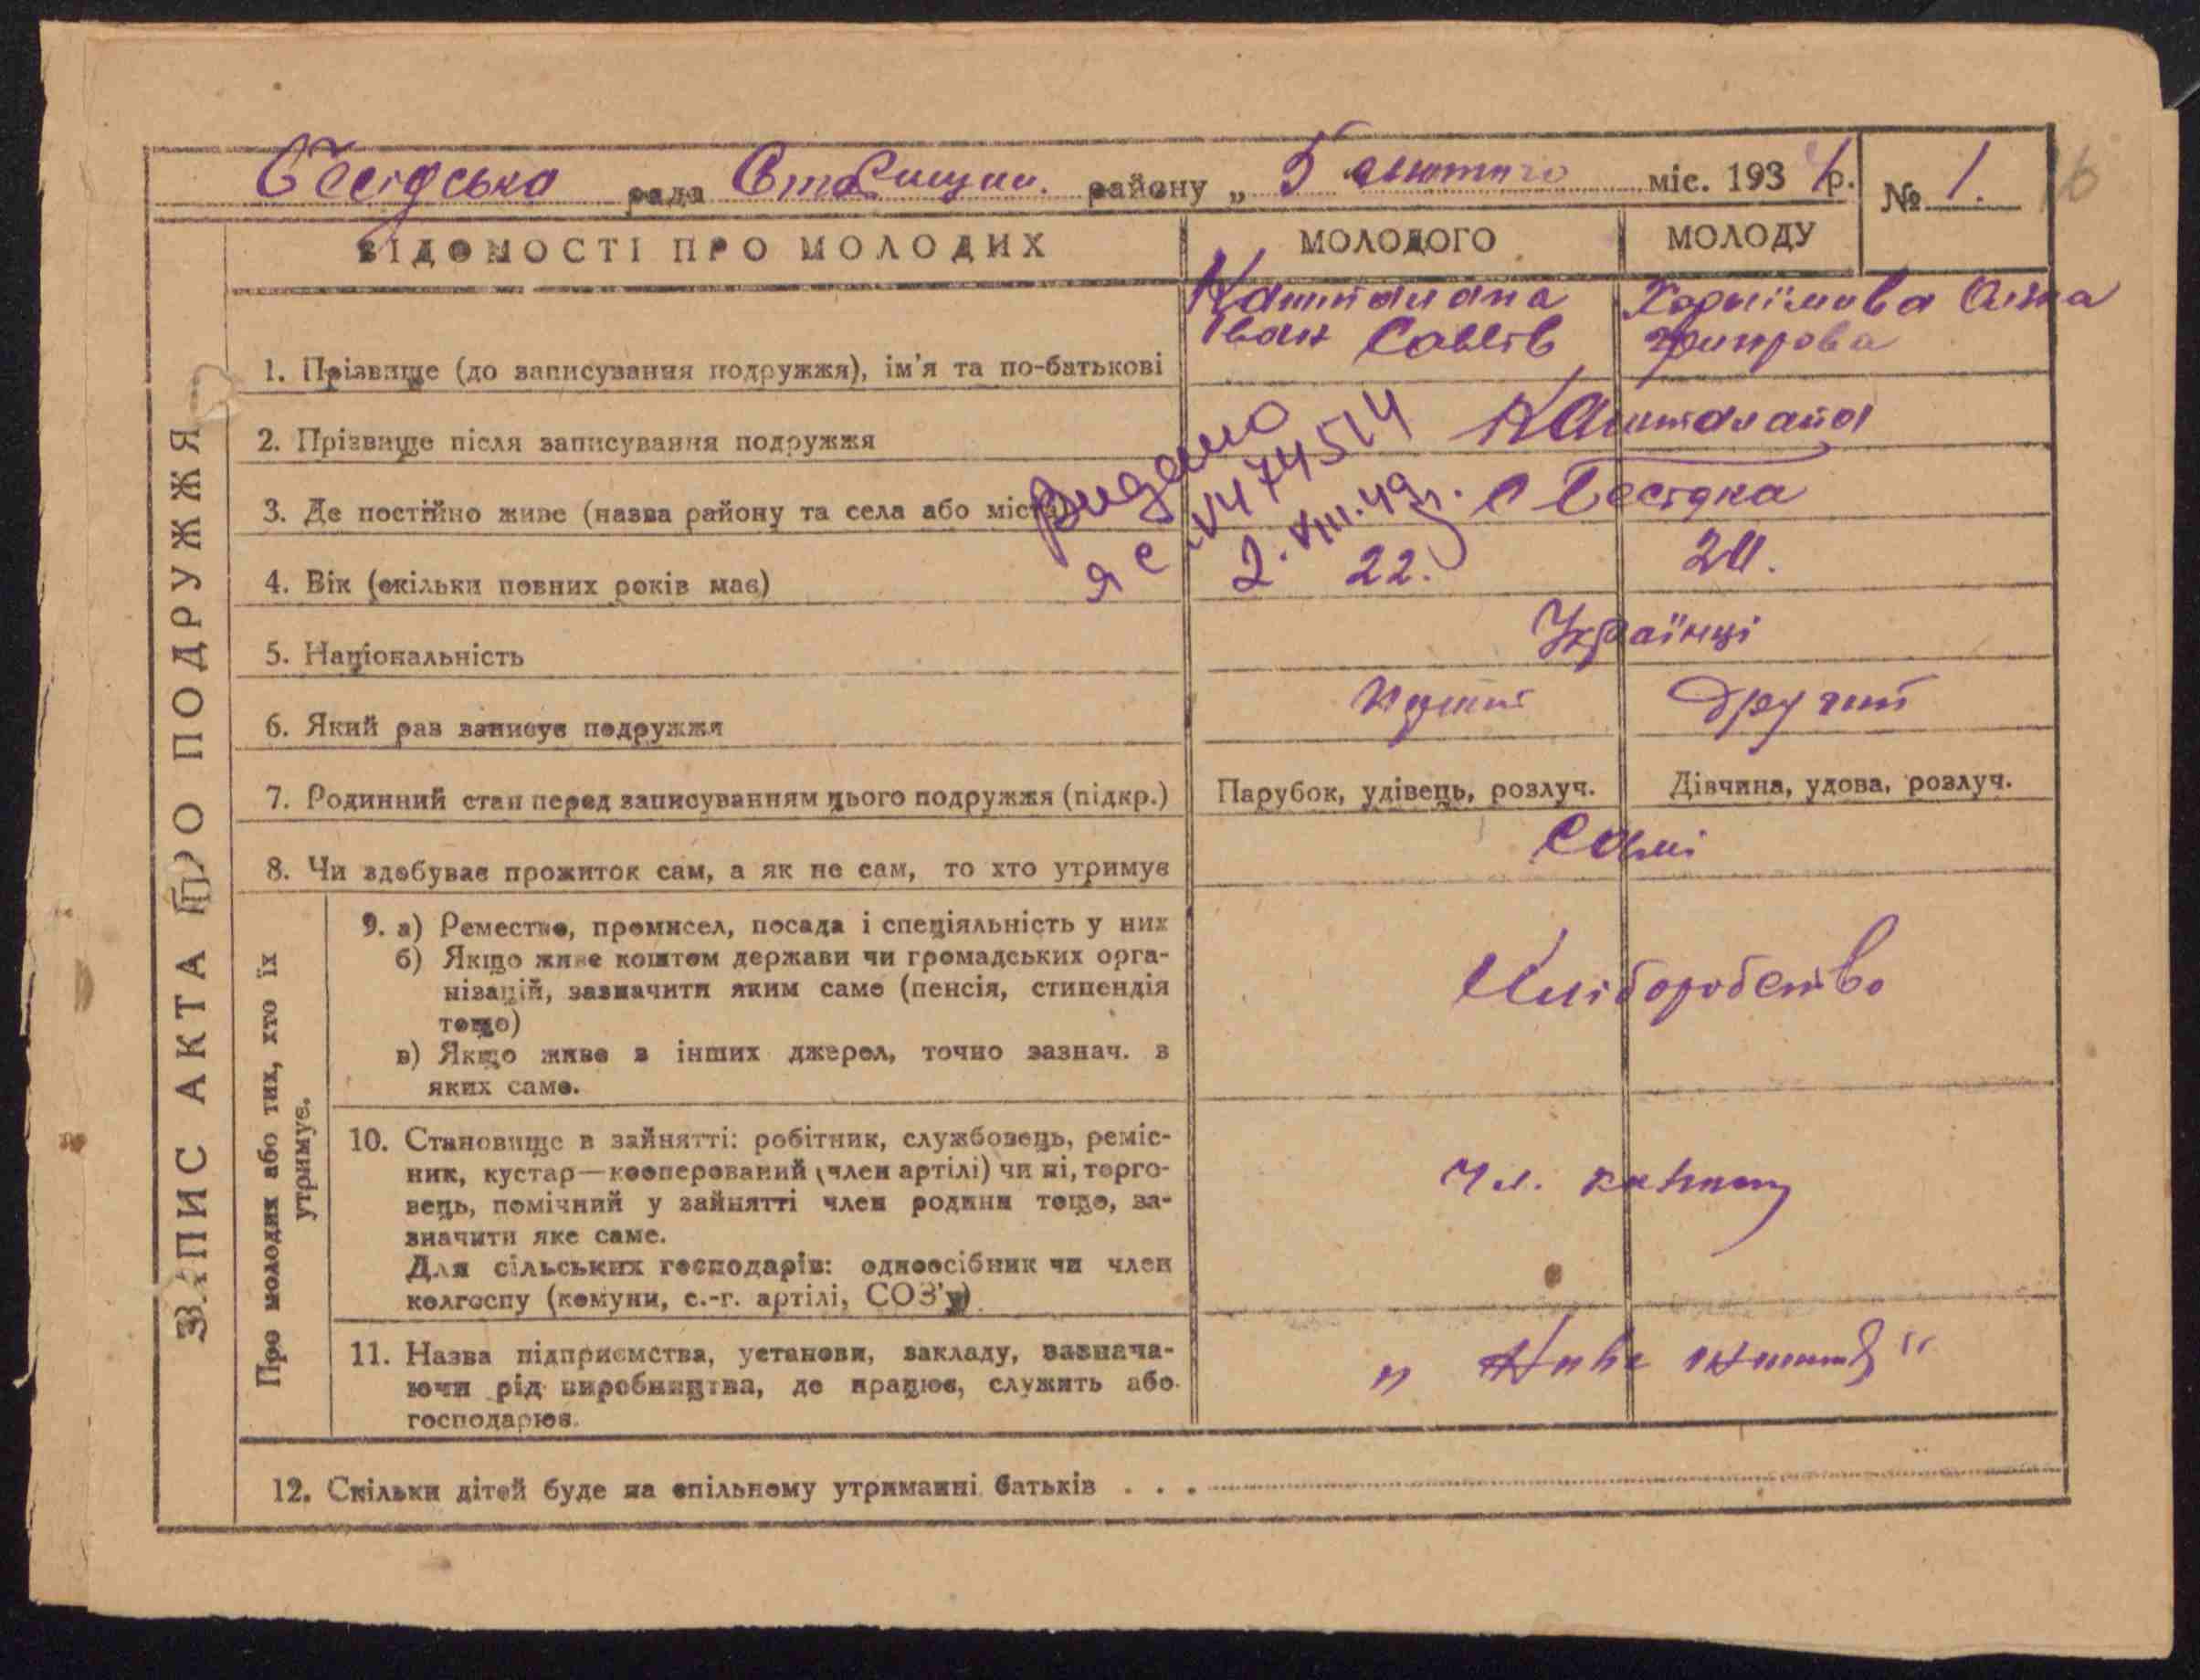 Бесідська рада Ставищан. району „ 5 " лютого міс. 1934 р. № 1.
16
ВІДОМОСТІ ПРО МОЛОДИХ МОЛОДОГО МОЛОДУ
ЗАПИС АКТА ПРО ПОДРУЖЖЯ
1. Прізвище (до записування подружжя), ім'я та по-батькові Кашталяна Іван Савків
2. Прізвище після записування подружжя Кашталяна
3. Де постійно живе (назва району та села або міста) с Бесідка
Видано
2.VIII.49р.
4. Вік (скільки повних років має) 22.
5. Національність Українці
6. Який раз записує подружжя другий
7. Родинний стан перед записуванням цього подружжя (підкр.) Парубок, удівець, розлуч. Дівчина, удова, розлуч.
8. Чи здобуває прожиток сам, а як не сам, то хто утримує Самі
Про молодих або тих, хто їх
утримує.
9. а) Ремество, промисел, посада і спеціяльність у них
б) Якщо живе коштом держави чи громадських орга-
нізацій, зазначити яким саме (пенсія, стипендія
тощо)
в) Якщо живе з інших джерел, точно зазнач. з
яких саме.
Хліборобство
10. Становище в зайнятті: робітник, службовець, реміс-
ник, кустар—кооперований (член артілі) чи ні, торго-
вець, помічний у зайнятті член родини тощо, за-
значити яке саме.
Для сільських господарів: одноосібник чи член
колгоспу (комуни, с.-г. артілі, СОЗ'у)
чл. колгоспу
11. Назва підприємства, установи, закладу, зазнача-
ючи рід виробництва, де працює, служить або
господарює.
12. Скільки дітей буде на спільному утриманні батьків . . .